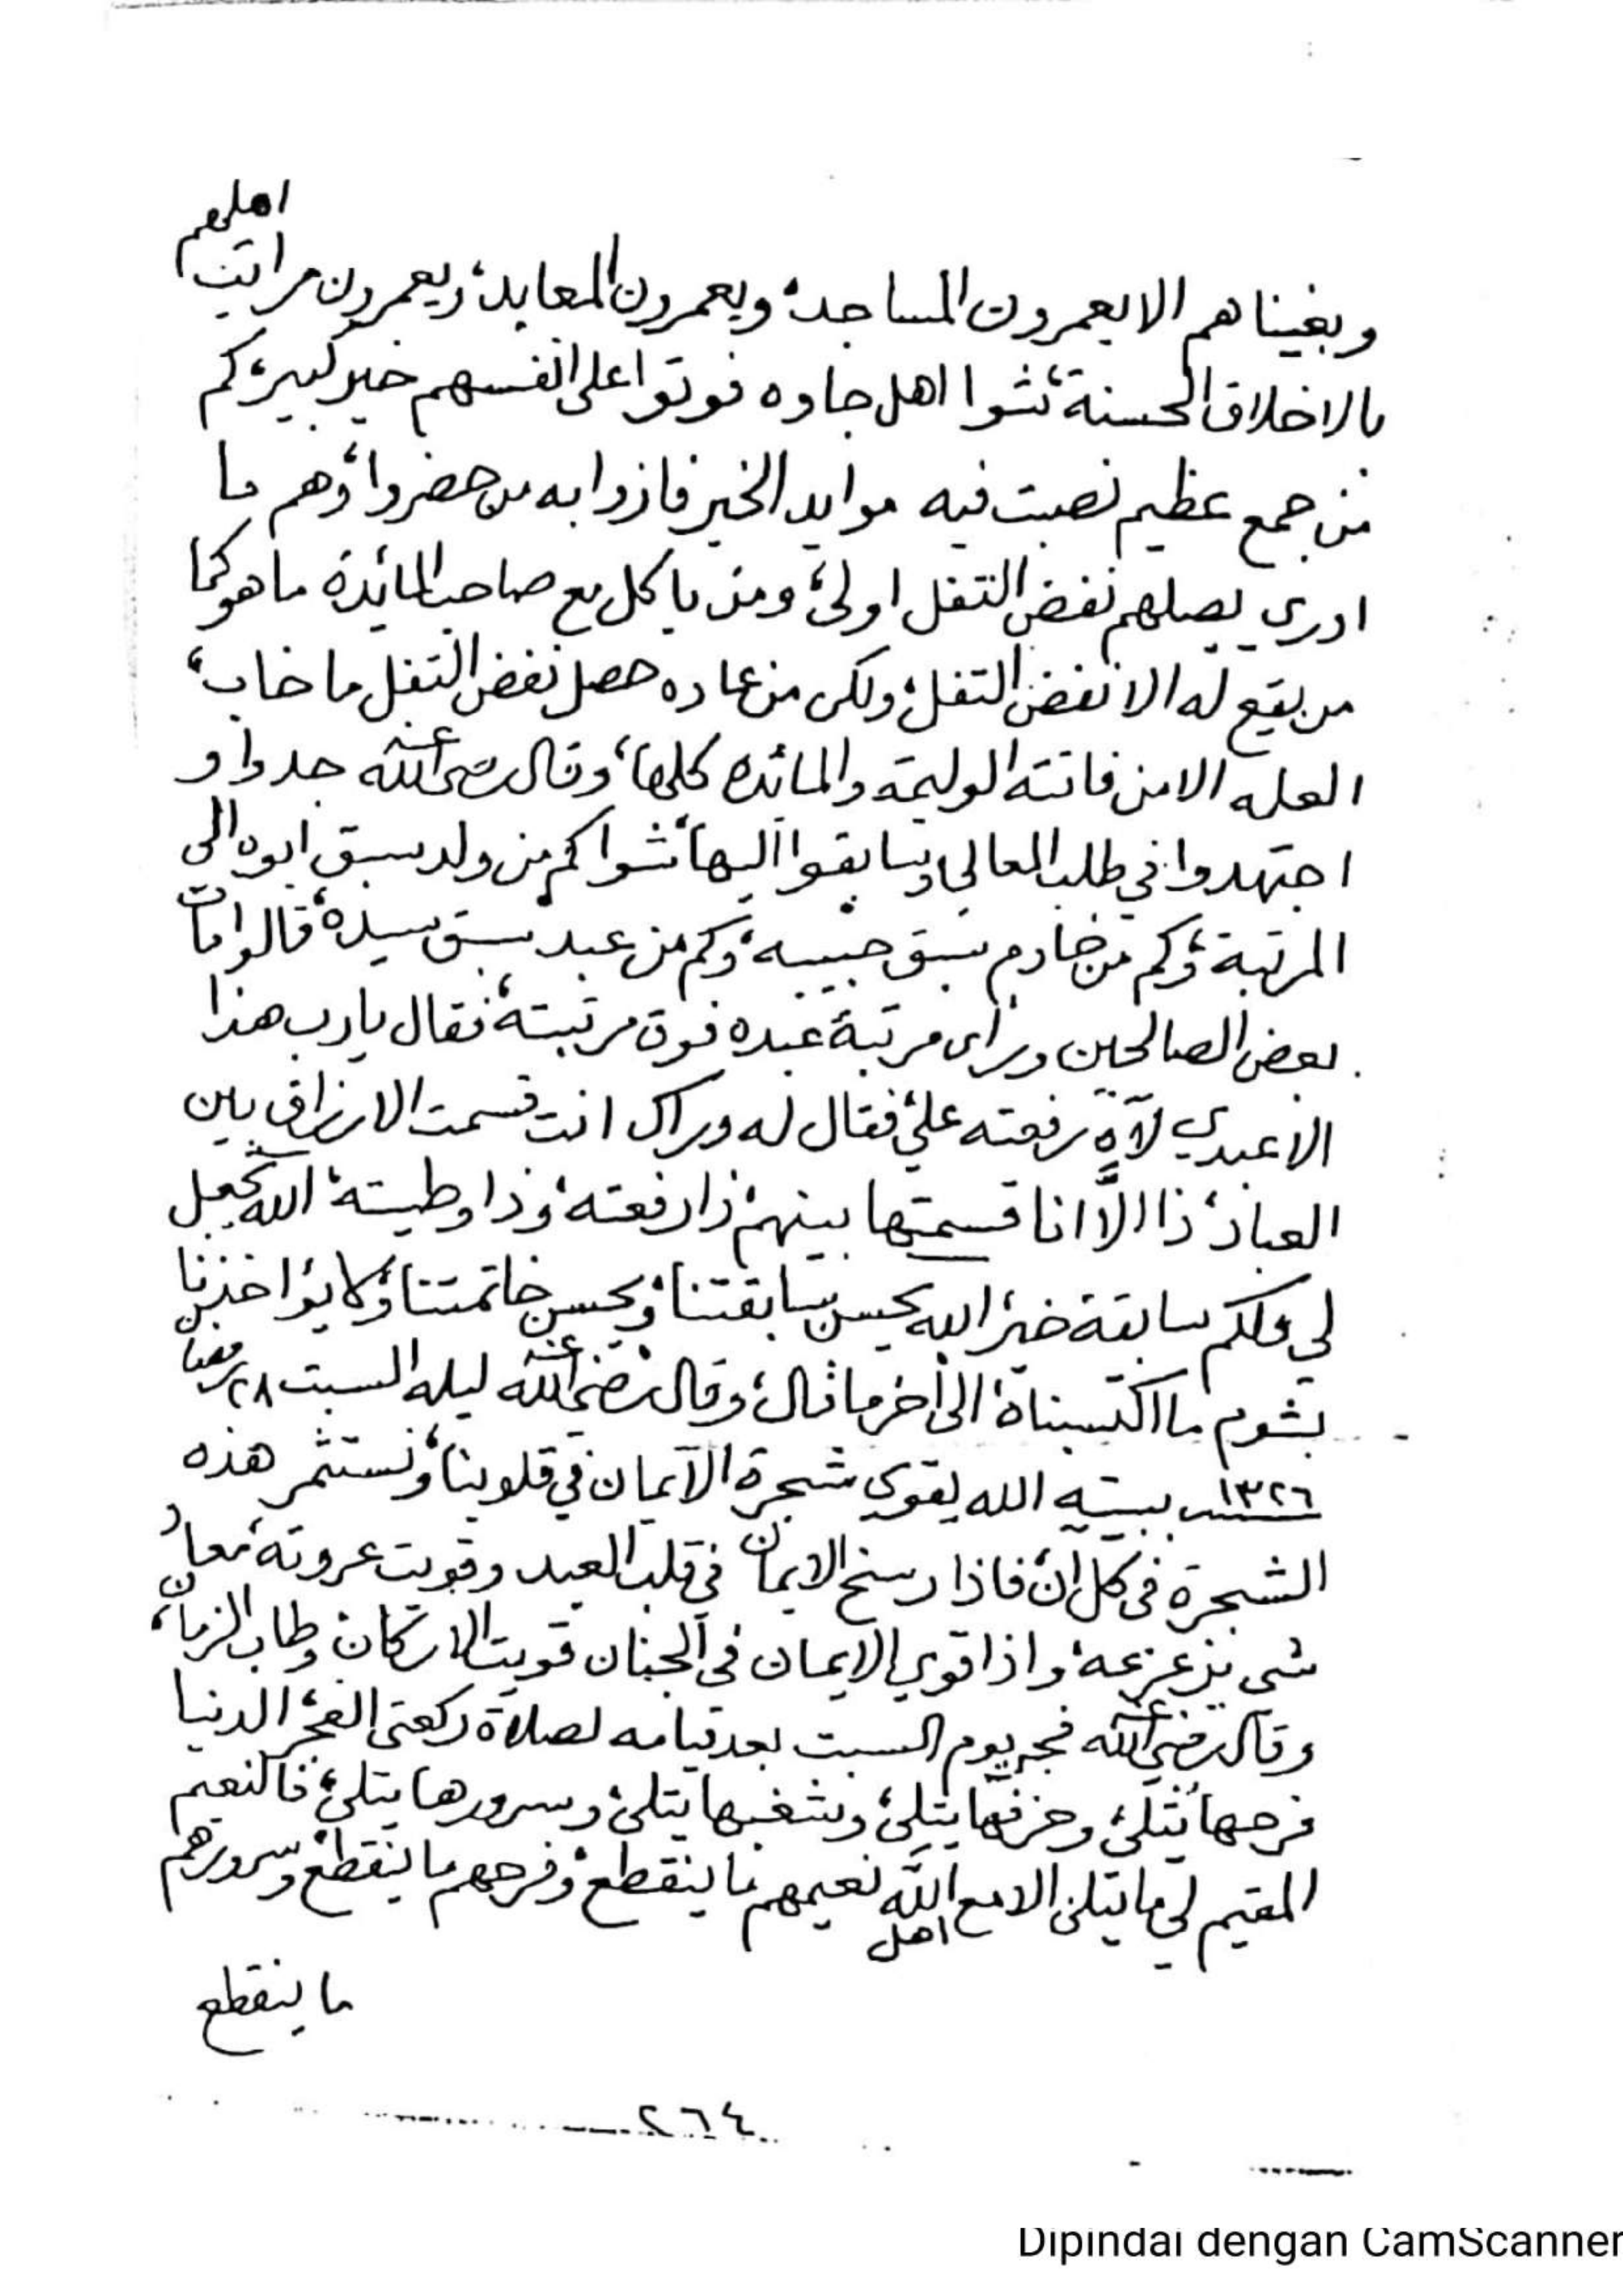 اهلهم
وبغيناهم الا يعمرون المساجد، ويعمرون المعابد، ويعمرون مراتب
بالاخلاق الحسنة، شوا اهل جاوه فوتوا على انفسهم خير كبير، كم
من جمع عظيم نصبت فيه موايد الخير فازوا به من حضروا، وهم ما
ادري يصلهم نفض التفل اولى، ومن ياكل مع صاحب المائدة ماهو كما
من يقع له الا نفض التفل، ولكن من عاده حصل نفض التفل ما خاب،
العله الا من فاتته الوليمة والمائده كلها، وقال رضي الله عنه جدوا و
اجتهدوا في طلب المعالي وسابقوا اليها، شوا كم من ولد سبق ابوه الى
المرتبة، وكم من خادم سبق حبيبه، وكم من عبد سبق سيده، قالوا مات
بعض الصالحين وراى مرتبة عبده فوق مرتبته، فقال يارب هذا
الا عبدي رفعته علي، فقال له وراك انت قسمت الارزاق بين
العباد، ذا الا انا قسمتها بينهم، ذا رفعته، وذا وطيته، الله يجعل
لي ولكم سابقة خير، الله يحسن سابقتنا، ويحسن خاتمتنا، ولا يؤاخذنا
بشوم ما اكتسبناه، الى اخر ما قال، وقال رضي الله عنه ليلة السبت ٢٨ رمضان
١٣٢٦ ببيته الله يقوي شجرة الايمان في قلوبنا، ونستثمر هذه
الشجرة في كل ان، فاذا رسخ الايمان في قلب العبد وقويت عروقه، معاد
شي يزعزعه، واذا قوي الايمان في الجنان قويت الاركان وطاب الزمان،
وقال رضي الله عنه فجر يوم السبت بعد قيامه لصلاة ركعتي الفجر، الدنيا
فرحها يتلى، وحزنها يتلى، وشغبها يتلى، وسرورها يتلى، فالنعيم
المقيم لي ما يتلى الا مع اهل الله نعيمهم ما ينقطع، وفرحهم ما ينقطع، وسرورهم
ما ينقطع
٢٦٤
Dipindai dengan CamScanner